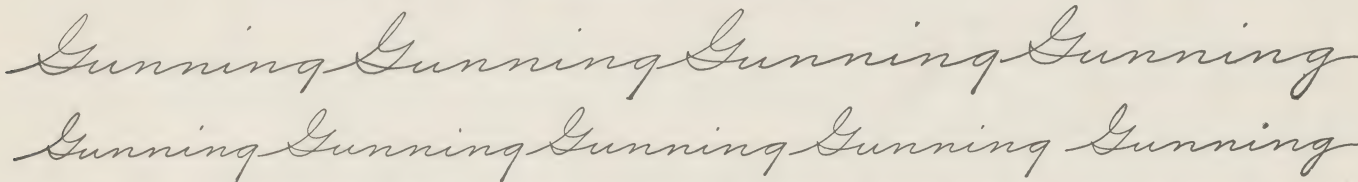 Gunning Gunning Gunning Gunning
Gunning Gunning Gunning Gunning Gunning